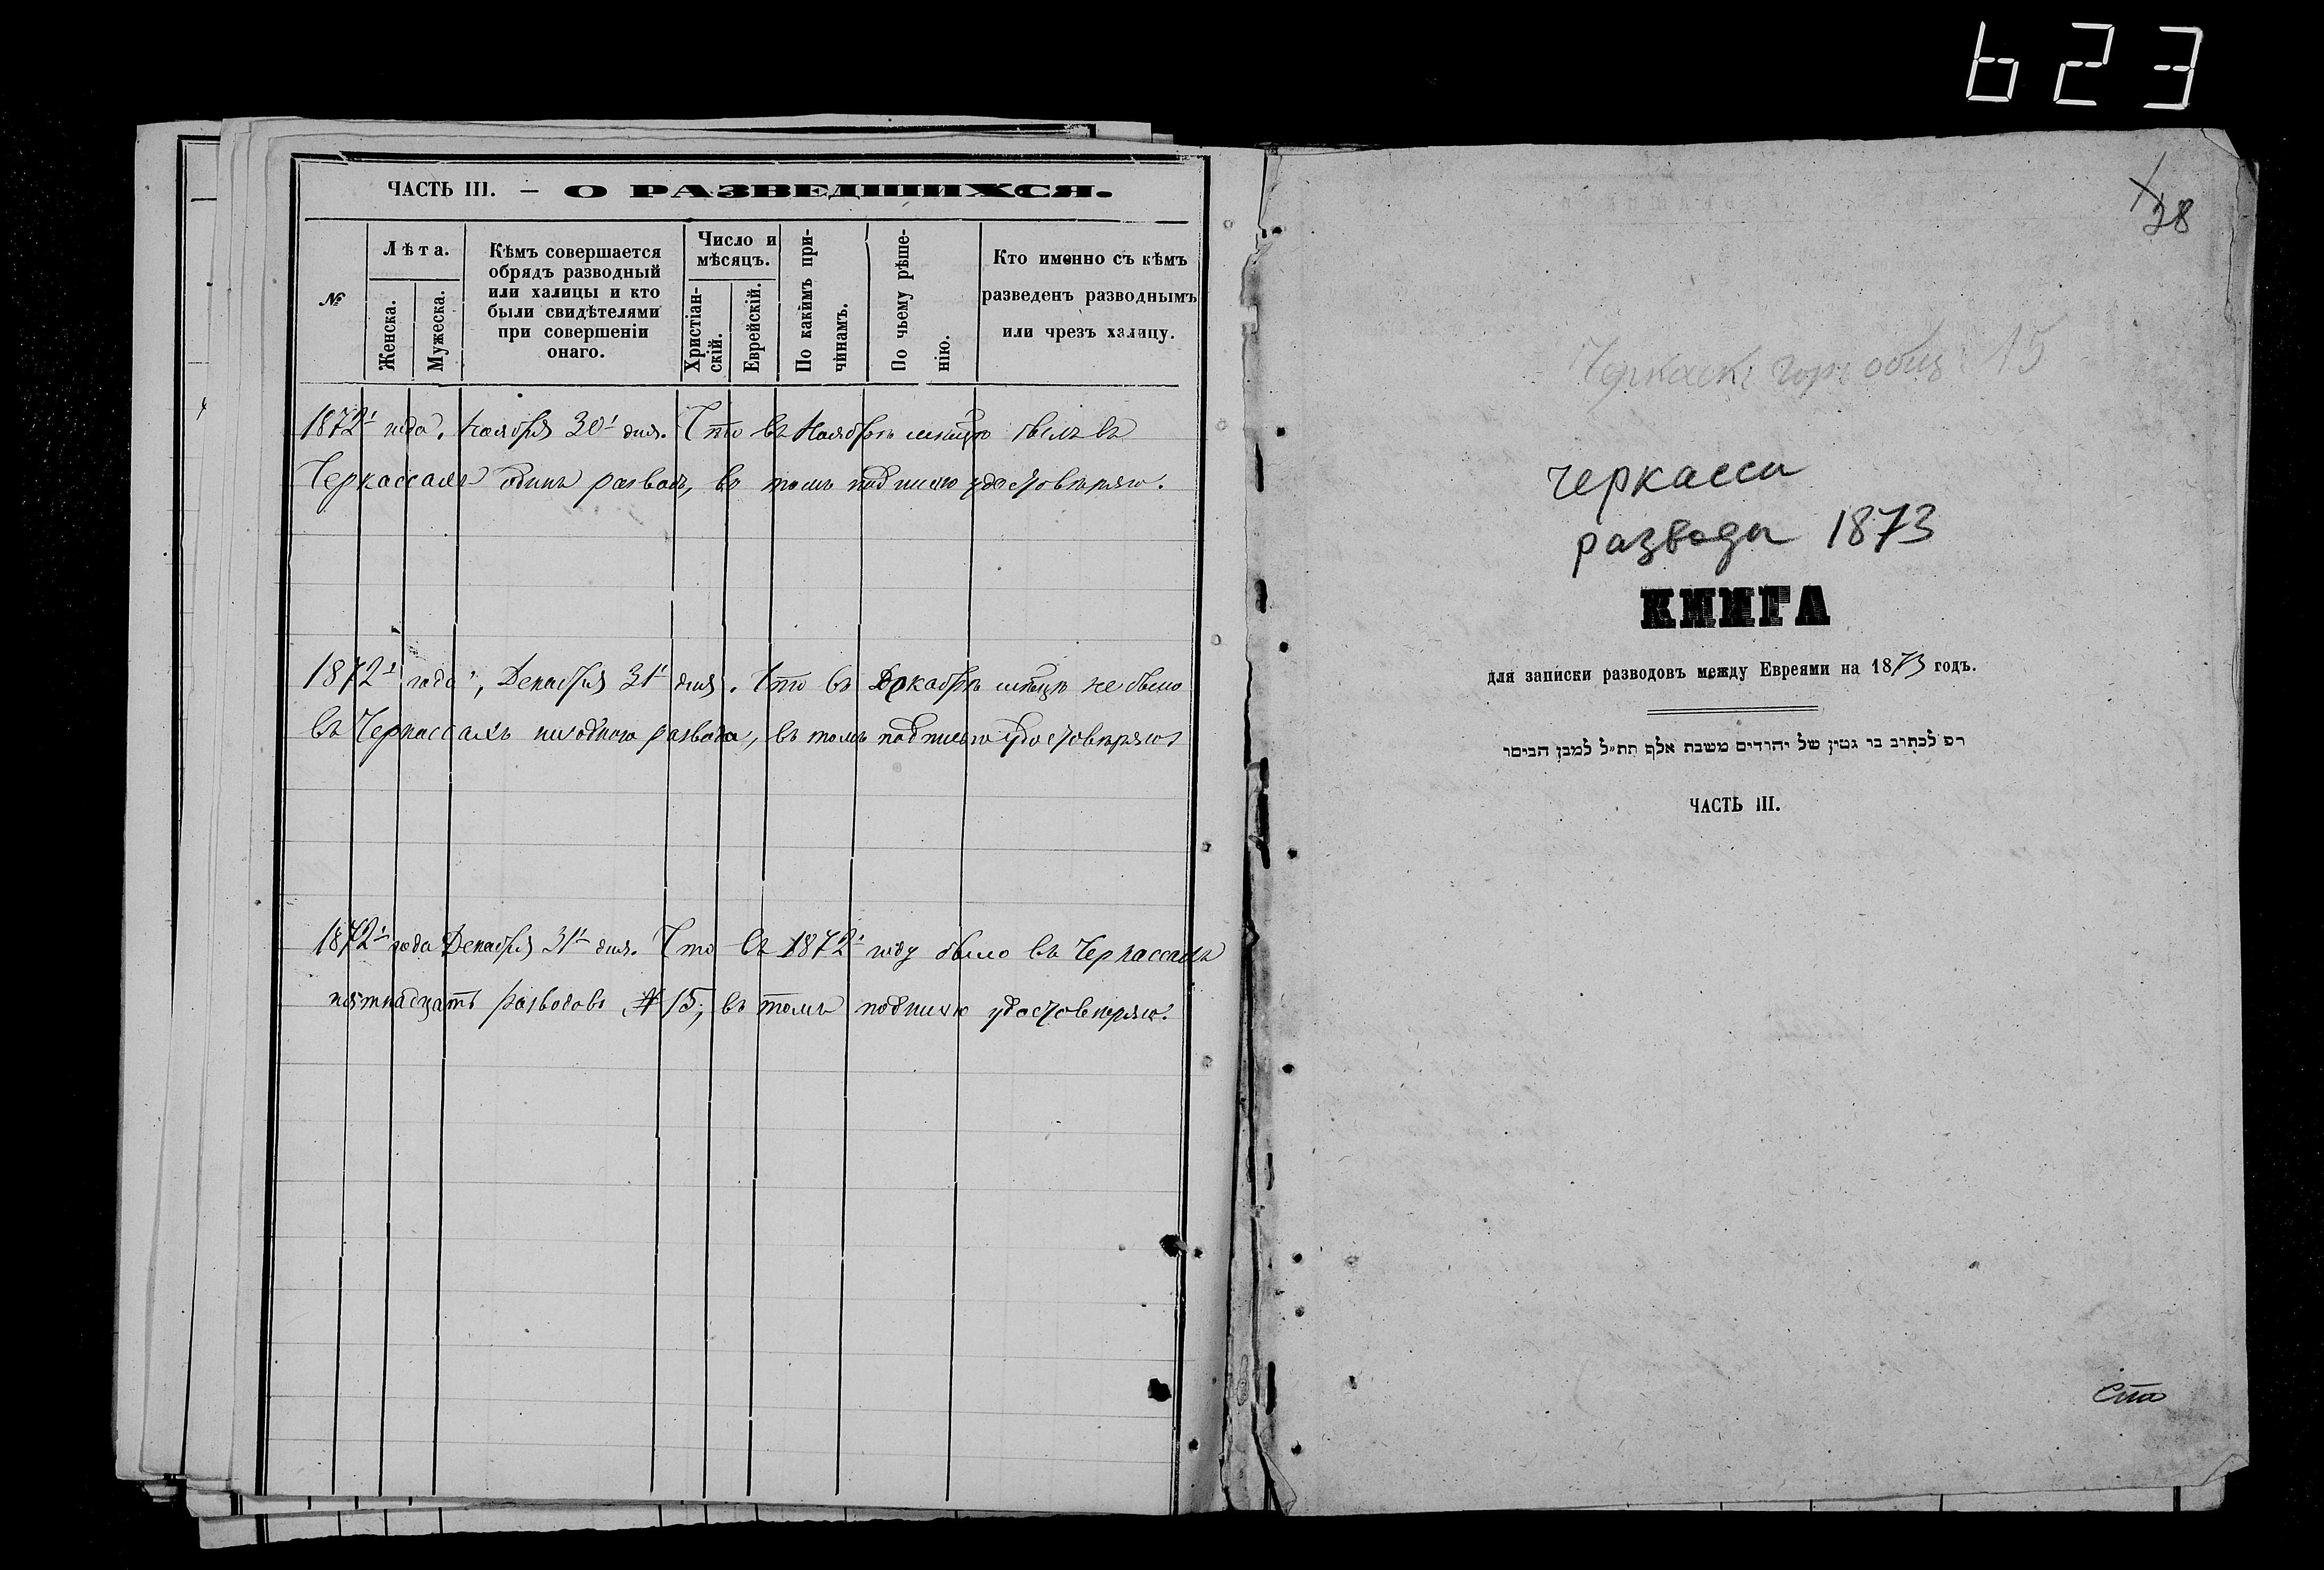 623
ЧАСТЬ III. — О РАЗВЕДШИХСЯ.
№
Лѣта.
Женска.
Мужеска.
Кѣмъ совершается
обрядъ разводный
или халицы и кто
были свидѣтелями
при совершеніи
онаго.
Число и
мѣсяцъ.
Христіан-
скій.
Еврейскій.
По какимъ при-
чинамъ.
По чьему рѣше-
нію.
Кто именно съ кѣмъ
разведенъ разводнымъ
или чрезъ халицу.
1872 года. Ноября 30 дня. Что въ Ноябрѣ мѣсяцѣ былъ въ
Черкассахъ одинъ разводъ, въ томъ подписью удостовѣряю.
1872 года, Декабря 31 дня. Что въ Декабрѣ мѣсяцѣ не было
въ Черкассахъ ниодного развода, въ томъ подписью удостовѣряю
1872 года Декабря 31 дня. Что въ 1872 году было въ Черкассахъ
пятнадцать разводовъ № 15, въ томъ подписью удостовѣряю.
38
Черкаск: гор: общ: 15
Черкасси
разводи 1873
КНИГА
для записки разводовъ между Евреями на 1873 годъ.
רפ לכתוב בו גטין של יהודים משבת אלף תת״ל למבן הביסו
ЧАСТЬ III.